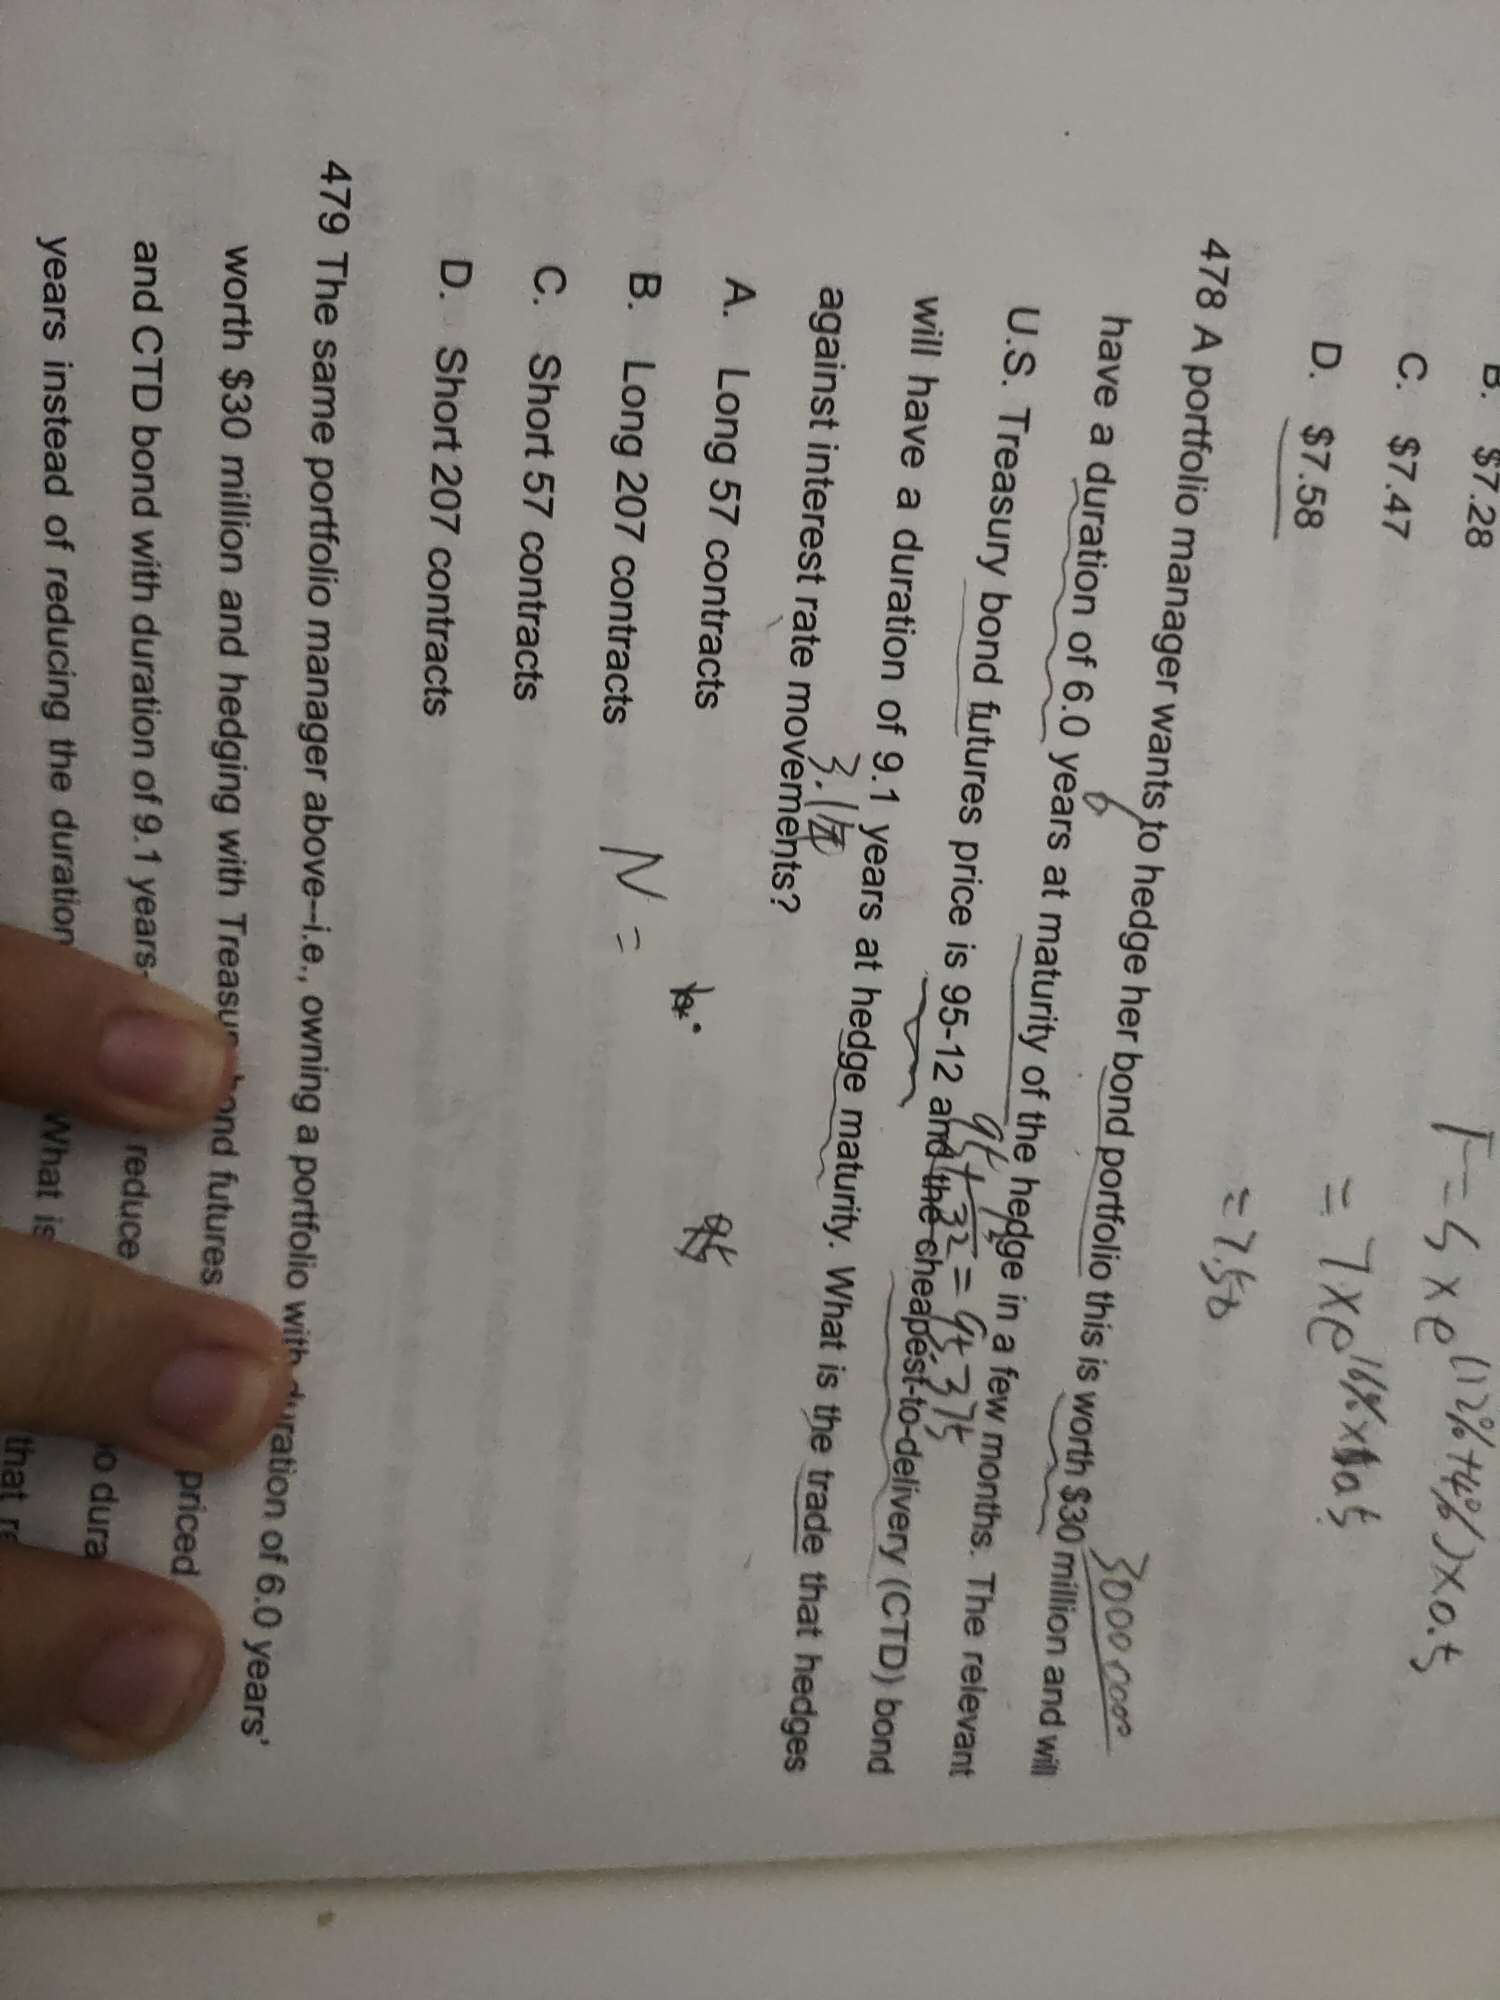 B. $7.28
C. $7.47
D. $7.58
F = S x e^(12%+4%)x0.5
= 7 x e^16%x0.5
= 7.58
3000 000
478 A portfolio manager wants to hedge her bond portfolio this is worth $30 million and will
have a duration of 6.0 years at maturity of the hedge in a few months. The relevant
6
95 + 12/32 = 95.375
U.S. Treasury bond futures price is 95-12 and the cheapest-to-delivery (CTD) bond
will have a duration of 9.1 years at hedge maturity. What is the trade that hedges
3.1年
against interest rate movements?
A. Long 57 contracts
B. Long 207 contracts
N =
95
C. Short 57 contracts
D. Short 207 contracts
479 The same portfolio manager above--i.e., owning a portfolio with duration of 6.0 years'
worth $30 million and hedging with Treasury bond futures priced
and CTD bond with duration of 9.1 years- reduce dura
years instead of reducing the duration What is that